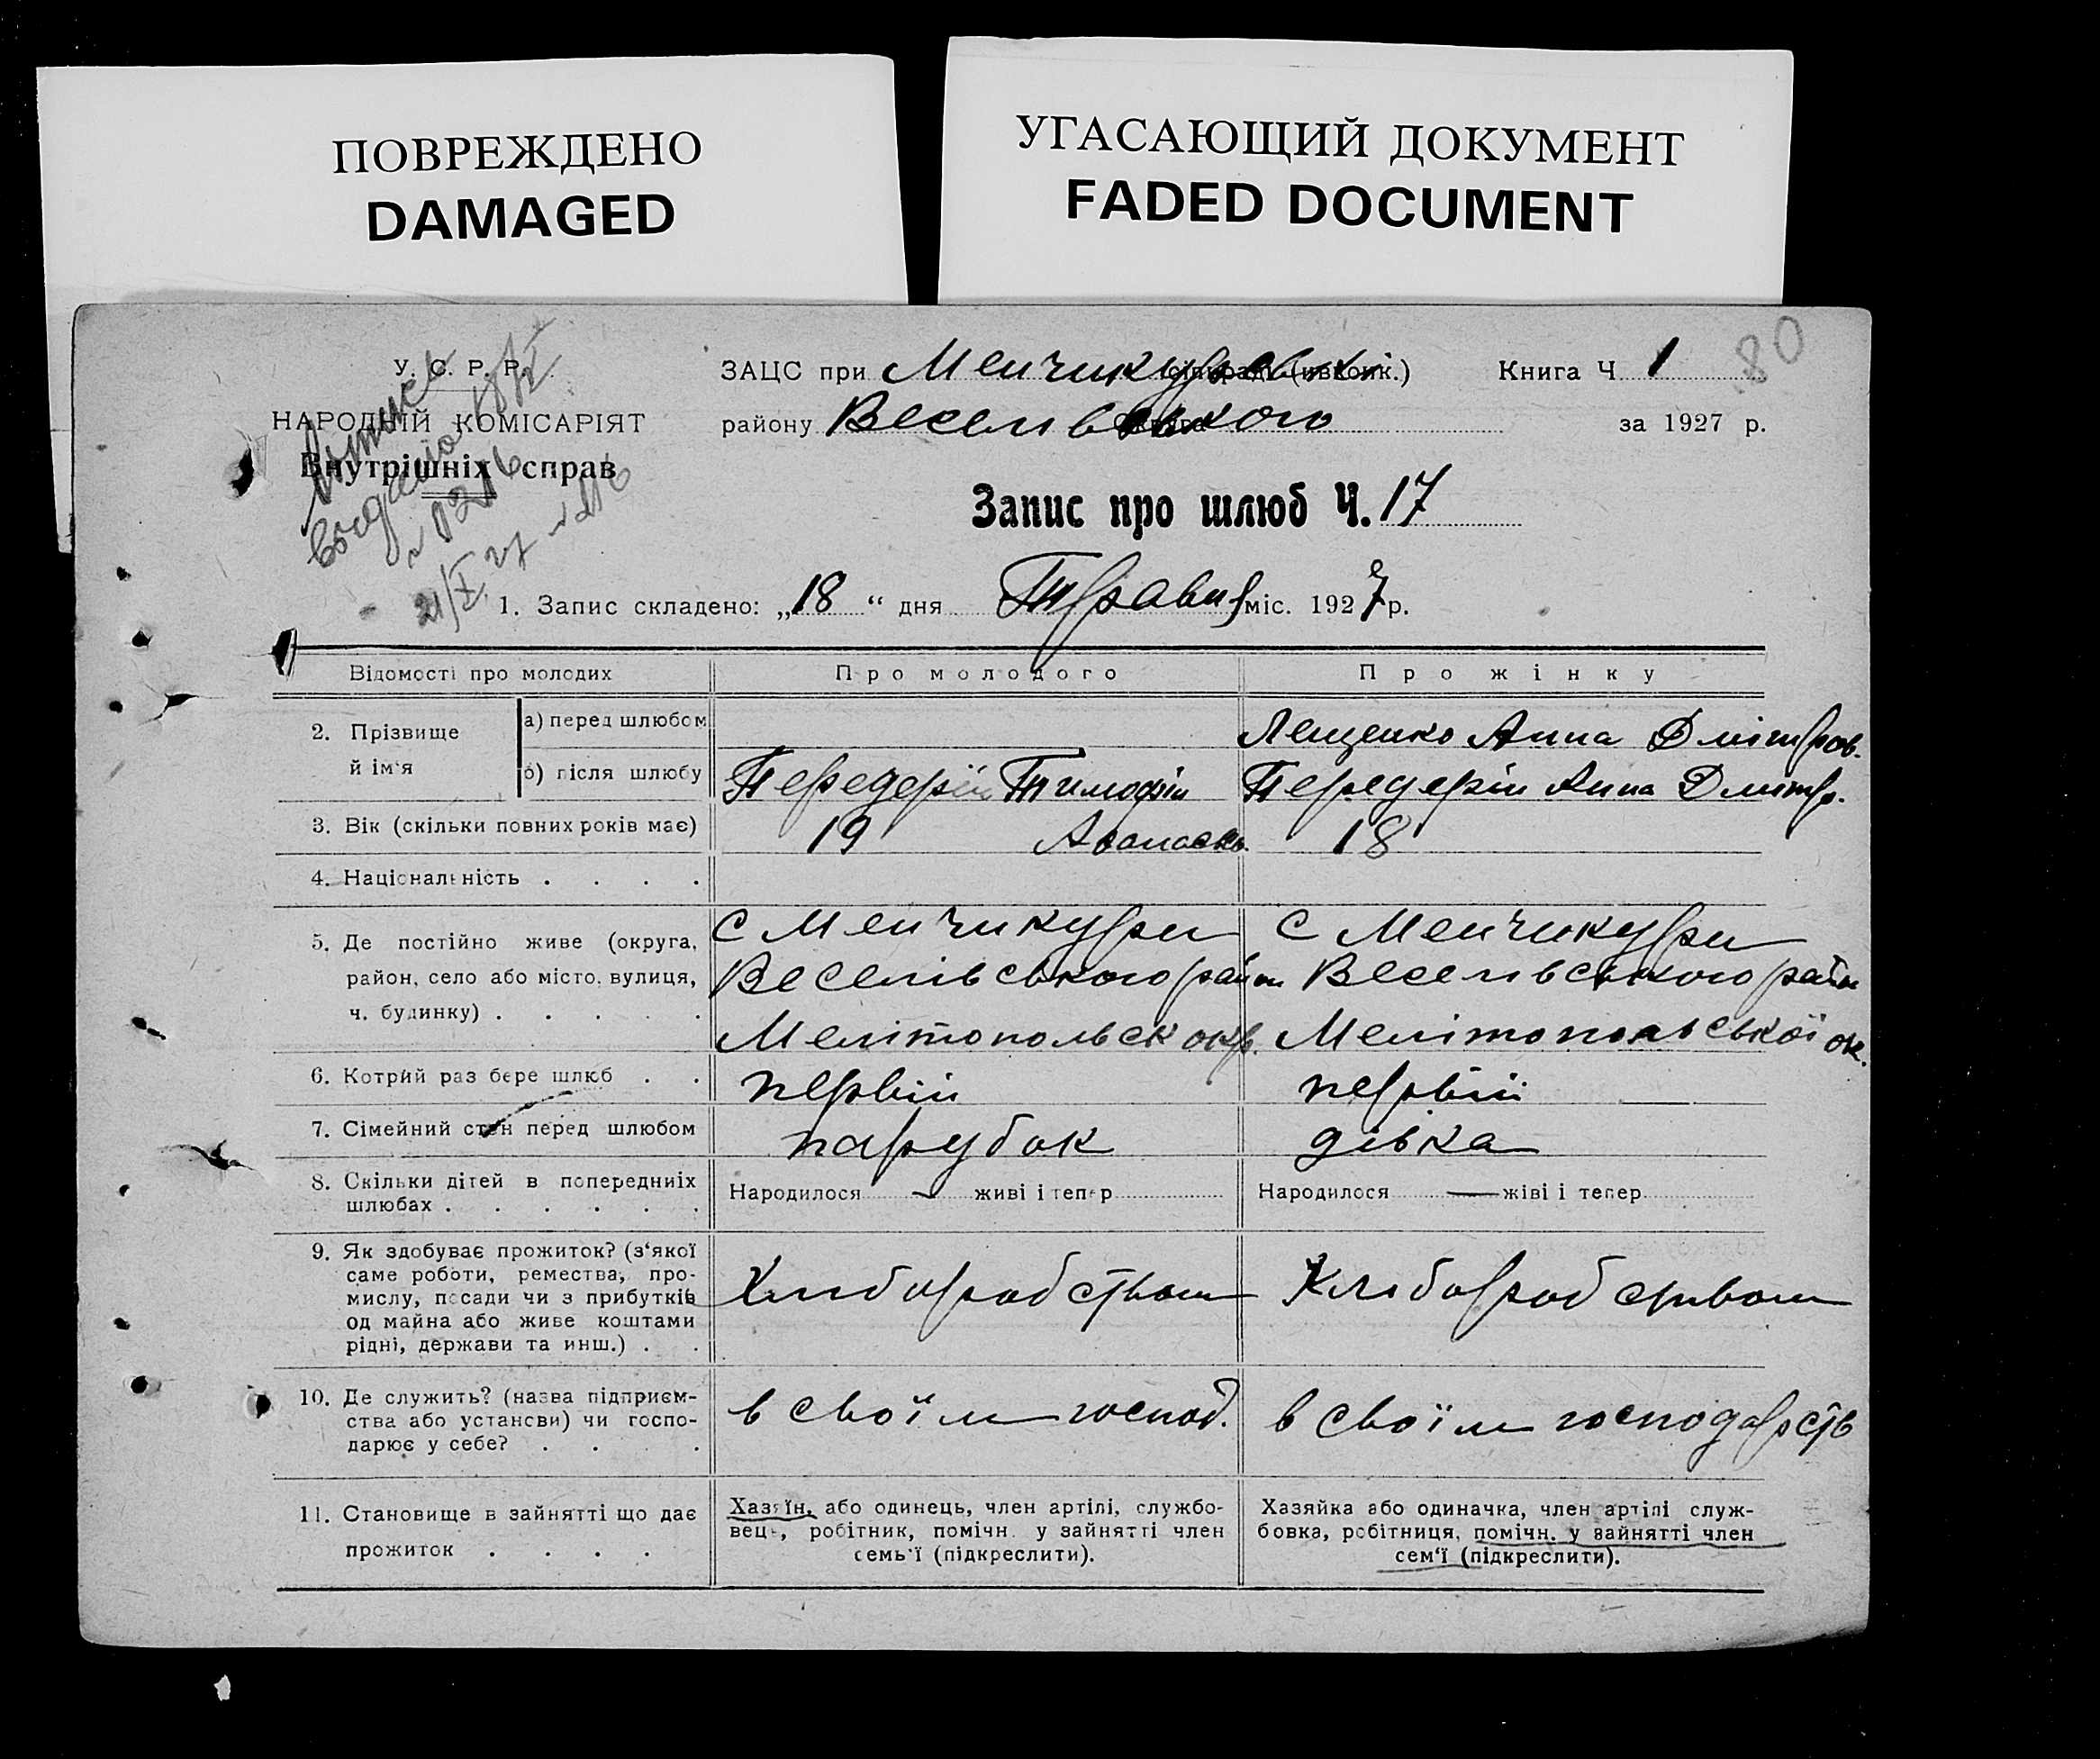 ПОВРЕЖДЕНО
DAMAGED
УГАСАЮЩИЙ ДОКУМЕНТ
FADED DOCUMENT
80
У. С. Р. Р.
НАРОДНІЙ КОМІСАРІЯТ
Внутрішніх справ
21/X 27
ЗАЦС при Менчикур
Книга Ч. 1
району Веселівського
за 1927 р.
Запис про шлюб Ч. 17
1. Запис складено: „18“ дня Травня міс. 1927 р.
Відомості про молодих
Про молодого
Про жінку
2. Прізвище й ім'я
а) перед шлюбом
Лещенко Анна Дмітров.
б) після шлюбу
Передерій Тимофій Афанасьев.
Передерій Анна Дмітр.
3. Вік (скільки повних років має)
19
18
4. Національність . . . .
5. Де постійно живе (округа,
район, село або місто, вулиця,
ч. будинку) . . . . .
с Менчикури
Веселівського район
Мелітопольськ окр.
с Менчикури
Веселівського район
Мелітопольської ок.
6. Котрий раз бере шлюб . .
первій
первій
7. Сімейний стан перед шлюбом
парубок
дівка
8. Скільки дітей в попередніх
шлюбах . . . . . .
Народилося — живі і тепер
Народилося — жіві і тепер
9. Як здобуває прожиток? (з'якої
саме роботи, ремества, про-
мислу, посади чи з прибутків
од майна або живе коштами
рідні, держави та инш.) . .
Хлиборобством
Хліборобством
10. Де служить? (назва підприєм-
ства або установи) чи госпо-
дарює у себе? . . . .
в своїм господ.
в своїм господарств
11. Становище в зайнятті що дає
прожиток . . . .
Хазяїн, або одинець, член артілі, службо-
вець, робітник, помічн. у зайнятті член
семь'ї (підкреслити).
Хазяйка або одиначка, член артілі служ-
бовка, робітниця, помічн. у зайнятті член
сем'ї (підкреслити).